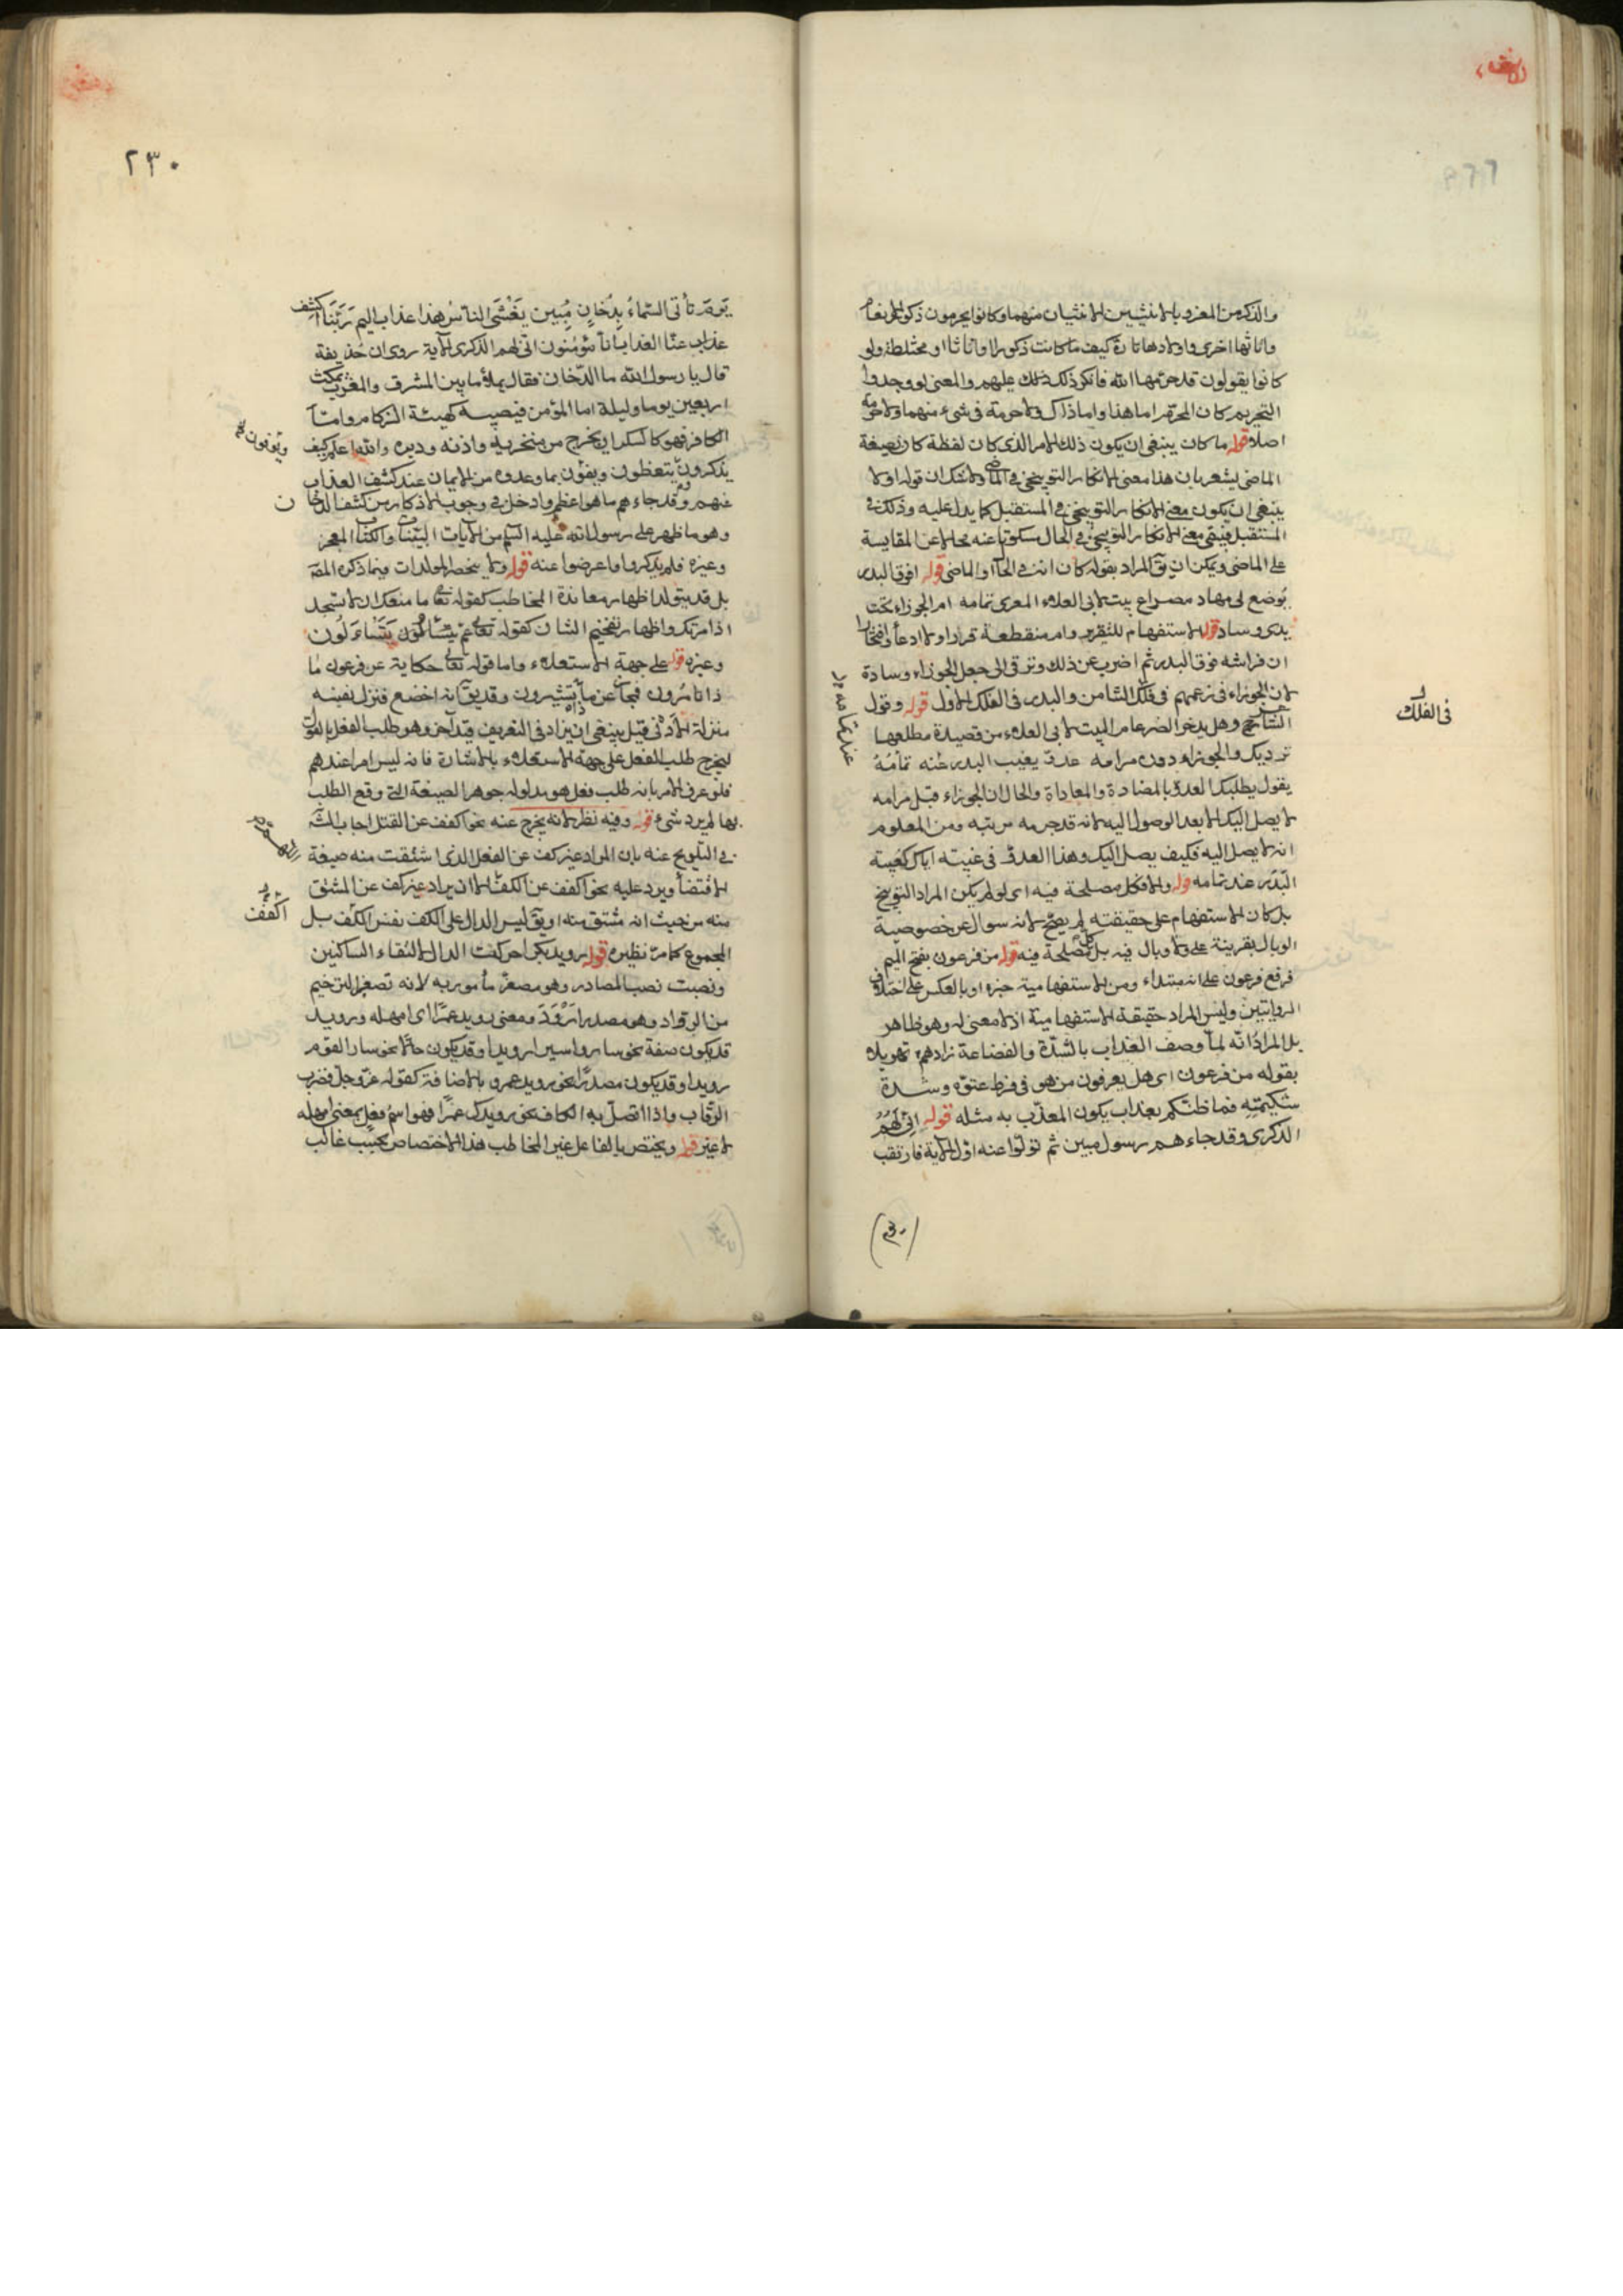 والذكر من المعز وبالانثيين الانثيان منهما وكانوا يحرمون ذكور الانعام
واناثها اخرى واولادها تارة كيف ما كانت ذكورا او اناثا او مختلطة ولو
كانوا يقولون قد حرمها الله فانكر ذلك عليهم والمعنى لو وجدوا
التحريم كان المحرم اما هذا واما ذاك ولا حرمة فى شىء منهما ولا حرمة
اصلا قوله ما كان ينبغى ان يكون ذلك الامر الذى كان لفظة كان بصيغة
الماضى يشعر بان هذا معنى الانكار التوبيخى فى الماضى ولا شك ان قوله اولا
ينبغى ان يكون معنى الانكار التوبيخى فى المستقبل كما يدل عليه وذلك فى
المستقبل فيبقى معنى الانكار التوبيخى فى الحال سكوتا عنه محالا عن المقايسة
على الماضى ويمكن ان يق المراد بقوله كان انت فى الحال والماضى قوله افوق البدر
يوضع لى مهاد مصراع بيت لابى العلاء المعرى تمامه ام الجوزاء تحت
يدى وساد قوله الاستفهام للتقرير وام منقطعة تمراد اولا ادعأ وافتخارا
ان فراشه فوق البدر ثم اضرب عن ذلك وترقى الى جعل الجوزاء وسادة
لان الجوزاء فى زعمهم فى فلك الثامن والبدر فى الفلك الاول قوله وقول
الشاعر وهل يدخر الضرغام البيت لابى العلاء من قصيدة مطلعها
تر ديك والجوزاء دون مرامه عدو يعيب البدر عند تمامه
يقول يطلبك العدو بالمضادة والمعاداة والحال ان الجوزاء قبل مرامه
لا يصل اليك الا بعد الوصول اليه لانه قد جر مه مرتبه ومن المعلوم
انه لا يصل اليه فكيف يصل اليك وهذا العدو فى غيبته اياك كغيبة
البدر عند تمامه قوله والا فكل مصلحة فيه اى لو لم يكن المراد التوبيخ
بل كان الاستفهام على حقيقته لم يصح لانه سوال عن خصوصية
الوبال بقرينة على ولا وبال فيه بل كل مصلحة فيه قوله من فرعون بفتح الميم
فرفع فرعون على انه مبتداء ومن الاستفهامية خبره او بالعكس على اختلاف
الروايتين وليس المراد حقيقة الاستفهامية اذ لا معنى له وهو ظاهر
بل المراد انه لما وصف العذاب بالشدة والفضاعة زادهم تهويلا
بقوله من فرعون اى هل يعرفون من هو فى فرط عتوه وشدة
شكيمته فما ظنكم بعذاب يكون المعذب به مثله قوله انى لهم
الذكرى وقد جاءهم رسول مبين ثم تولوا عنه اول الاية فارتقب
فى الفلك
عند تمامه
٢٣٠
يوم تأتى السماء بدخان مبين يغشى الناس هذا عذاب اليم ربنا اكشف
عذاب عنا العذاب انا مؤمنون انى لهم الذكرى الاية روى ان حذيفة
قال يا رسول الله ما الدخان فقال يملأ ما بين المشرق والمغرب يمكث
اربعين يوما وليلة اما المؤمن فيصيبه كهيئة الزكام واما
الكافر فهو كالسكران يخرج من منخريه واذنه ودبره والله اعلم كيف
يذكرون يتعظون ويفؤن بما وعدوه من الايمان عند كشف العذاب
عنهم وقد جاءهم ما هو اعظم وادخل فى وجوب الاذكار من كشف الدخان
وهو ما ظهر على رسول الله عليه السلم من الايات البينات والكتاب المعجز
وغيره فلم يذكروا واعرضوا عنه قوله ولا ينحصر المولدات فيما ذكره المصـ
بل قد يتولد اظهار معاندة المخاطب كقوله تعالى ما منعك ان لا تسجد
اذ امرتك واظهار تفخيم الشان كقوله تعالى عم يتساءلون
وغيره قوله على جهة الاستعلاء واما قوله تعالى حكاية عن فرعون ما
ذا تأمرون فمجاز عن ما ذا تشيرون وقد يق انه اخضع فنزل نفسه
منزلة الادنى قيل ينبغى ان يزاد فى التعريف قيد آخر وهو طلب الفعل بالقول
ليخرج طلب الفعل على جهة الاستعلاء بالاشارة فانه ليس امرا عندهم
فلو عرف الامر بانه طلب فعل هو مدلوله جوهر الصيغة التى وقع الطلب
بها لم يرد شىء قوله وفيه نظر لانه يخرج عنه نحو اكفف عن القتل اجاب الشـ
فى التلويح عنه بان المراد غير كف عن الفعل الذى اشتقت منه صيغة
الاقتضأ ويرد عليه نحو اكفف عن الكف الا ان يراد غير كف عن المشتق
منه من حيث انه مشتق منه او يق ليس الدال على الكف نفس اكفف بل
المجموع كما مر نظيره قوله رويد بكرا حركت الدال لالتقاء الساكنين
ونصبت نصب المصادر وهو مصغر مأمور به لانه تصغير الترخيم
من الارواد وهو مصدر ارود ومعنى رويد عمرا اى امهله ورويد
قد يكون صفة نحو ساروا سيرا رويدا وقد يكون حالا نحو سار القوم
رويدا وقد يكون مصدرا نحو رويد عمرو بالاضافة كقوله عز وجل فضرب
الرقاب واذا اتصل به الكاف نحو رويدك عمرا فهو اسم فعل بمعنى امهله
لا غير قوله ويختص بالفاعل غير المخاطب هذا الاختصاص بحسب غالب
اكفف